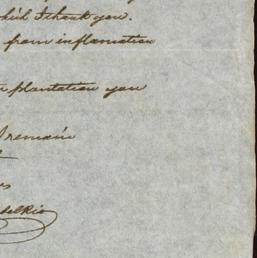 I thank you.
from inflamation
plantation you
I remain